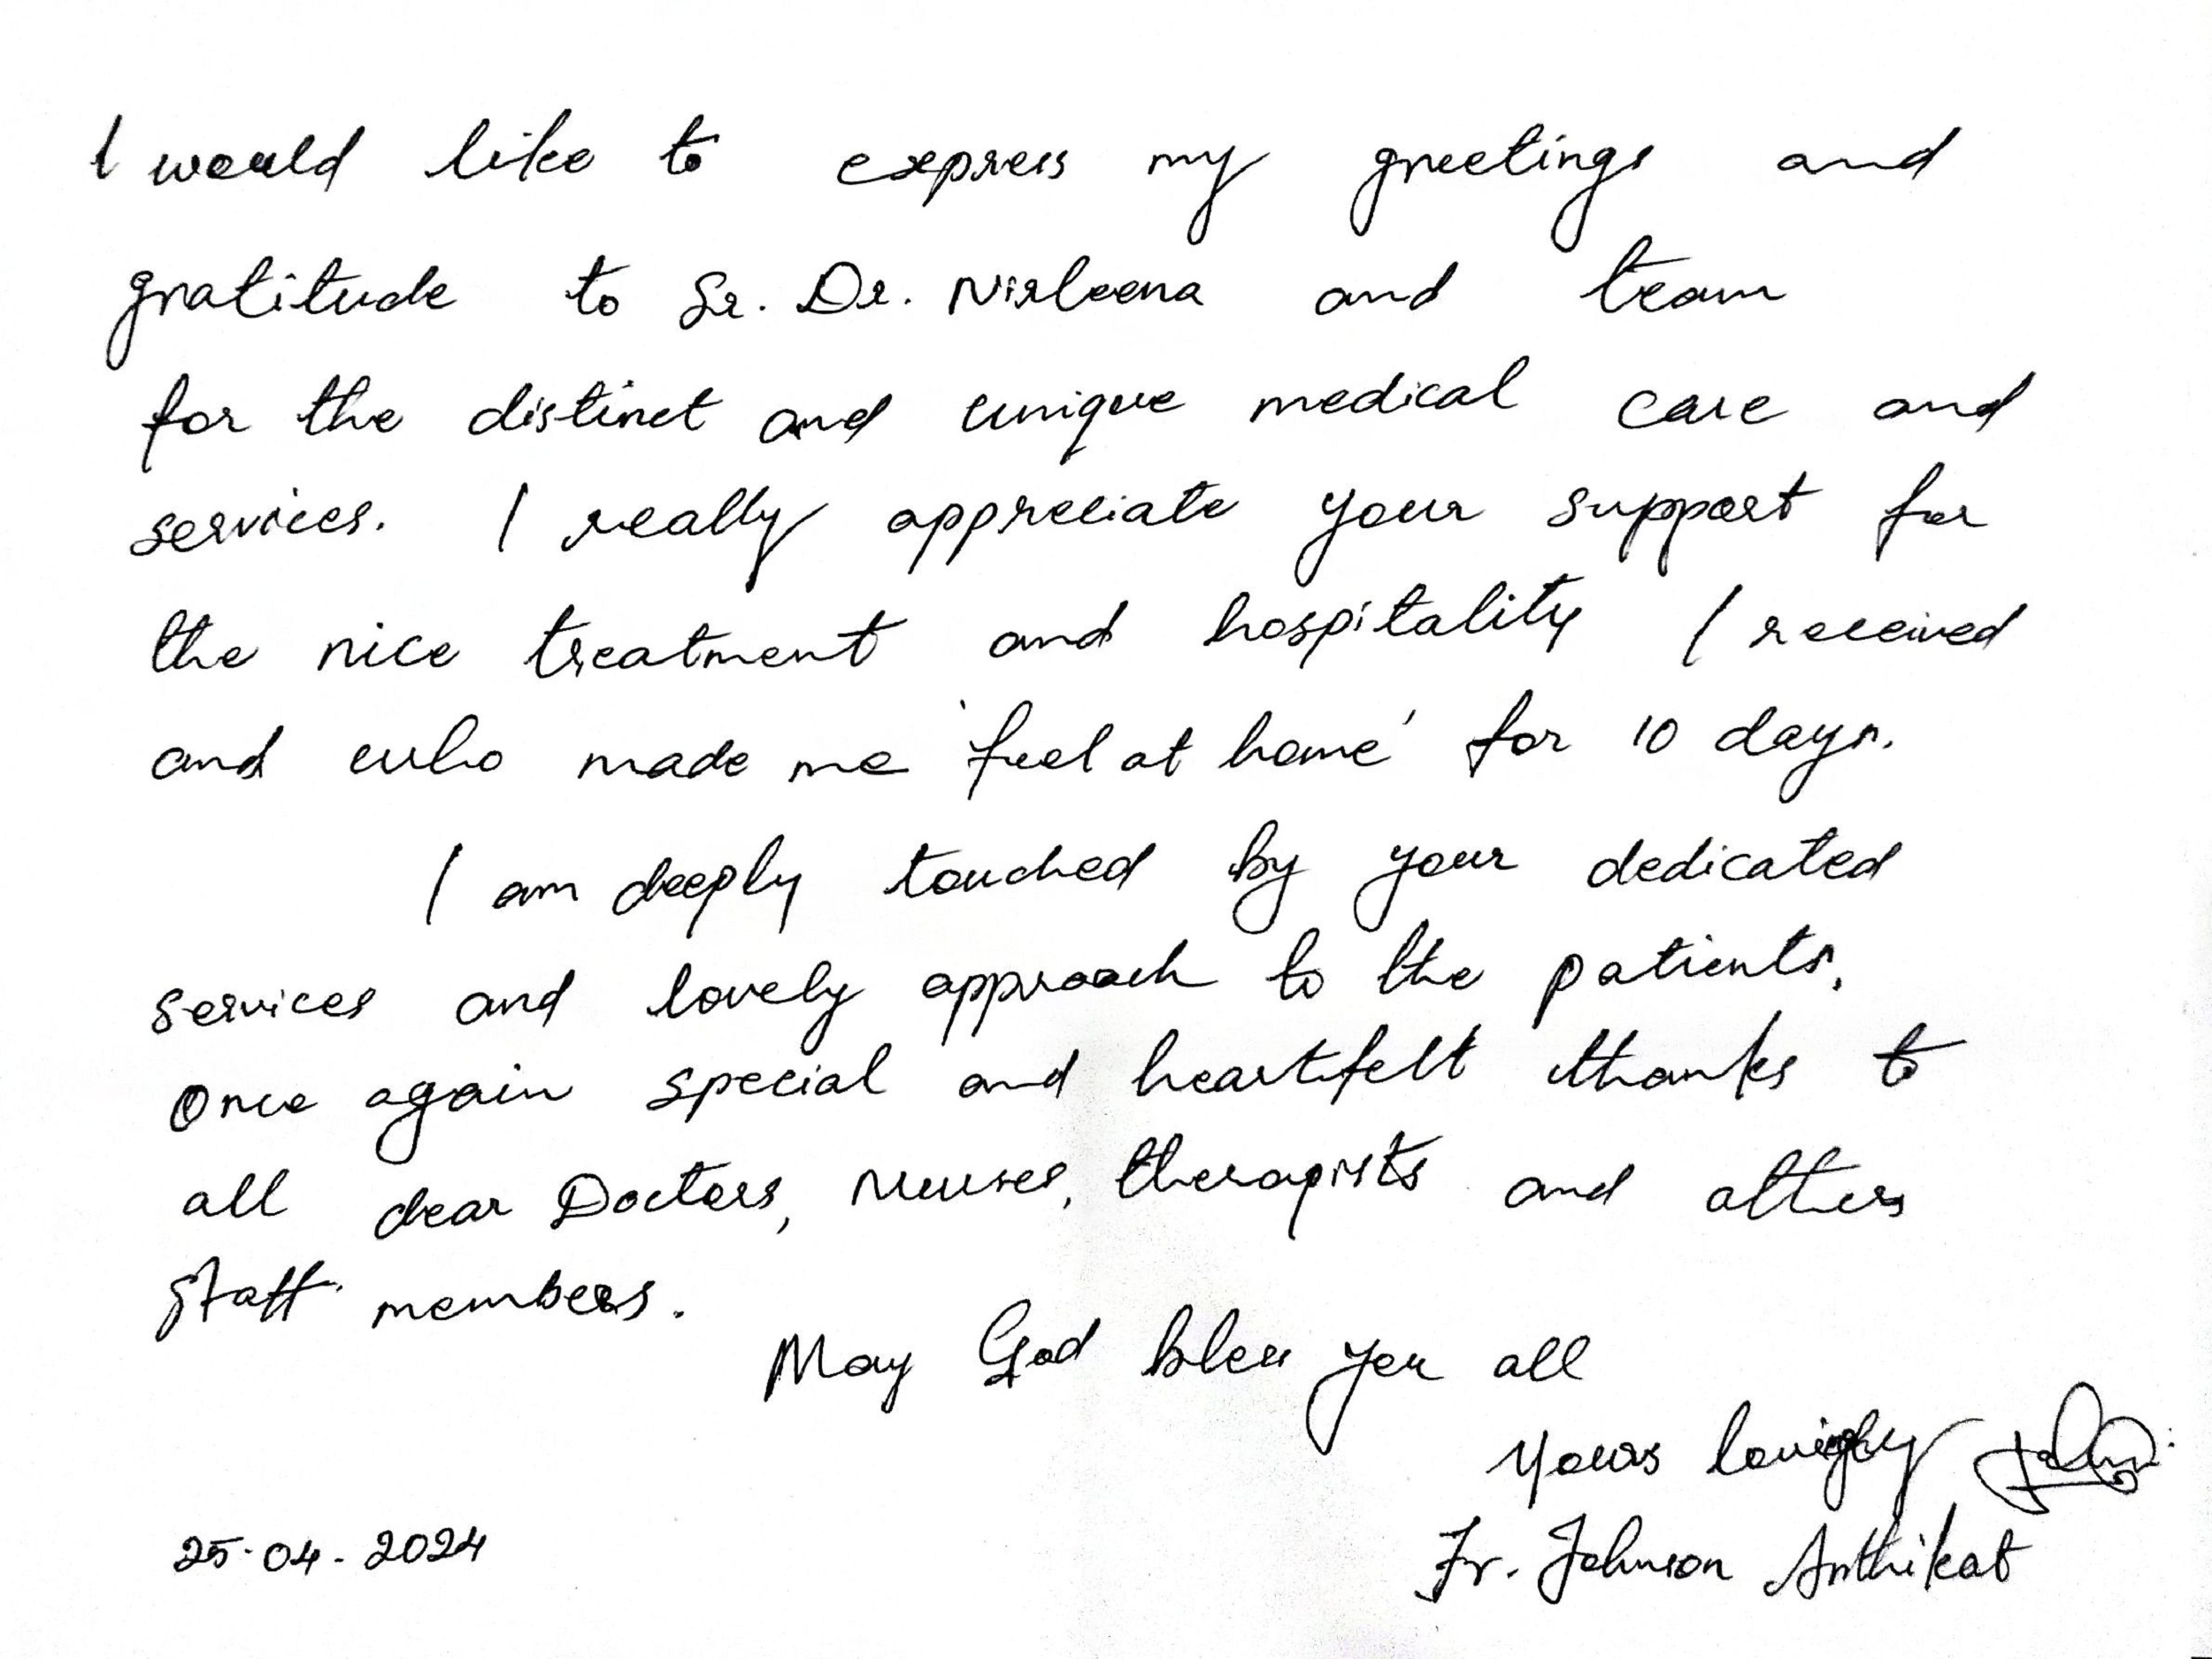 I would like to express my greetings and
gratitude to Sr. Dr. Nirleena and team
for the distinct and unique medical care and
services. I really appreciate your support for
the nice treatment and hospitality I received
and who made me 'feel at home' for 10 days.
I am deeply touched by your dedicated
services and lovely approach to the patients.
Once again special and heartfelt thanks to
all dear Doctors, Nurses, therapists and others
staff members.
May God bless you all
Yours lovingly
Fr. Johnson Anthikat
25-04-2024